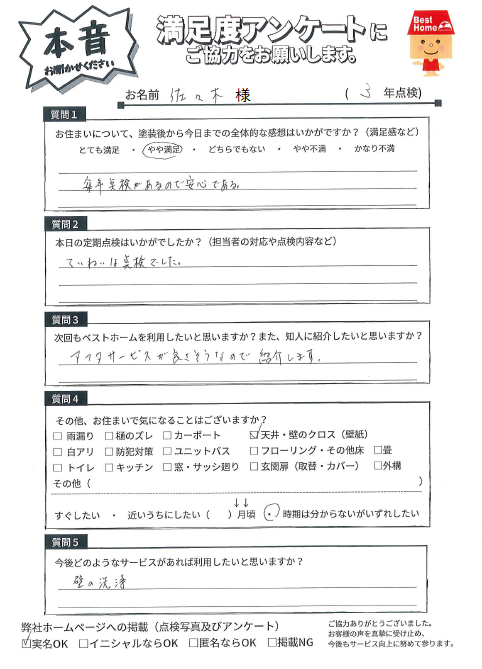 本音
お聞かせください
満足度アンケートに
ご協力をお願いします。
Best Home
お名前 佐々木 様 ( 3 年点検)
質問1
お住まいについて、塗装後から今日までの全体的な感想はいかがですか?(満足感など)
とても満足 ・ やや満足 ・ どちらでもない ・ やや不満 ・ かなり不満
毎年点検があるので安心である。
質問2
本日の定期点検はいかがでしたか?(担当者の対応や点検内容など)
ていねいな点検でした。
質問3
次回もベストホームを利用したいと思いますか?また、知人に紹介したいと思いますか?
アフタサービスが良さそうなので紹介します。
質問4
その他、お住まいで気になることはございますか?
□ 雨漏り □ 樋のズレ □ カーポート ☑ 天井・壁のクロス(壁紙)
□ 白アリ □ 防犯対策 □ ユニットバス □ フローリング・その他床 □畳
□ トイレ □ キッチン □ 窓・サッシ廻り □ 玄関扉(取替・カバー) □外構
その他( )
↓↓
すぐしたい ・ 近いうちにしたい( )月頃 ・ 時期は分からないがいずれしたい
質問5
今後どのようなサービスがあれば利用したいと思いますか?
壁の洗浄
弊社ホームページへの掲載(点検写真及びアンケート)
☑実名OK □イニシャルならOK □匿名ならOK □掲載NG
ご協力ありがとうございました。
お客様の声を真摯に受け止め、
今後もサービス向上に努めて参ります。